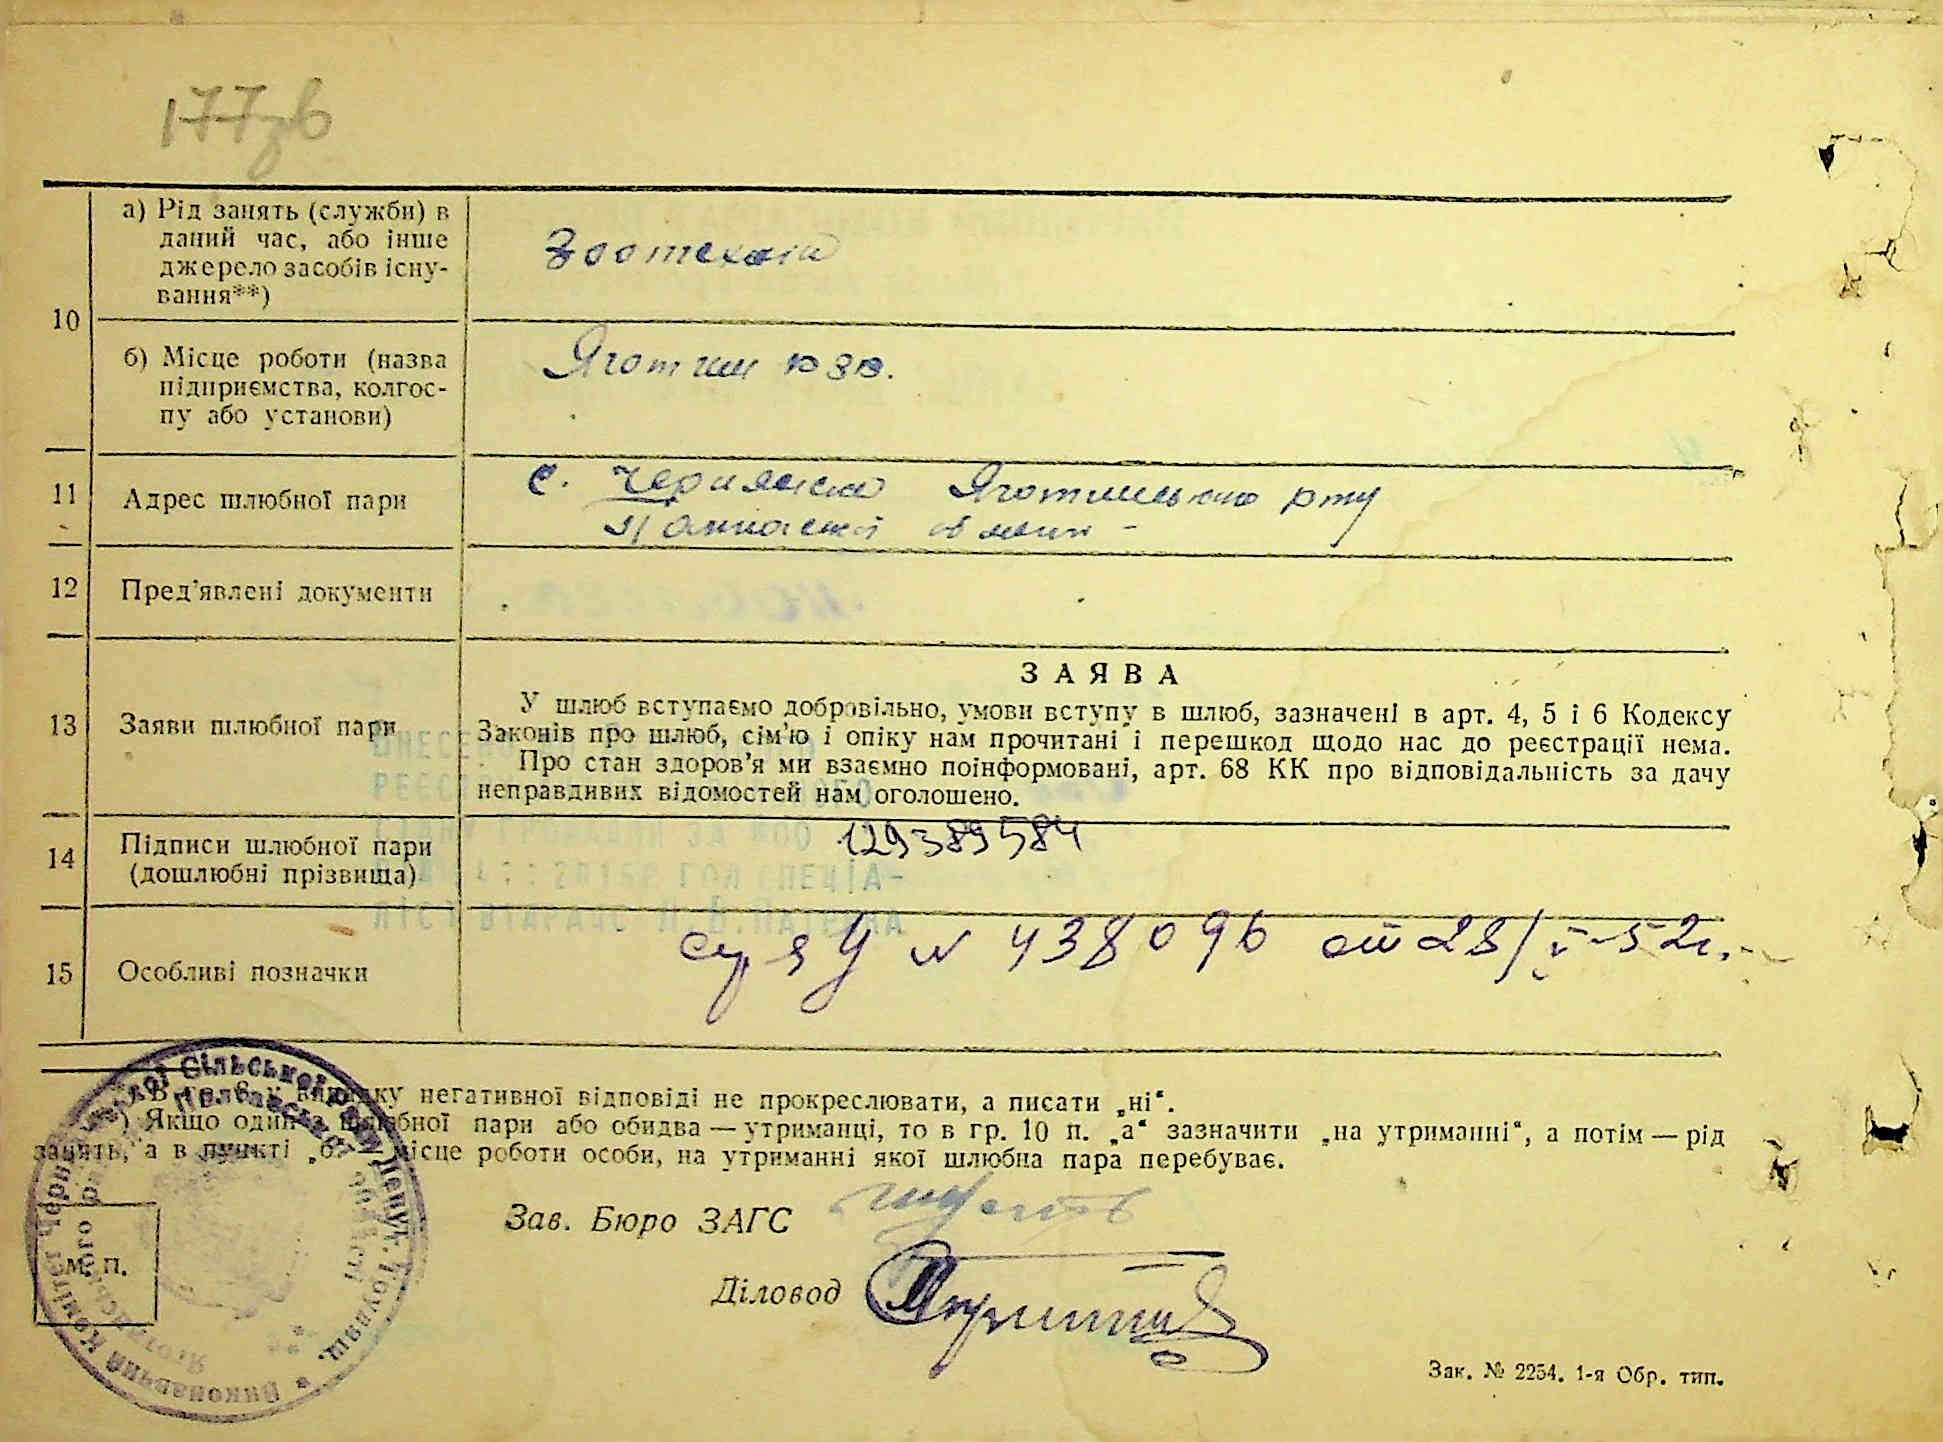 177зв
10
а) Рід занять (служби) в
даний час, або інше
джерело засобів існу-
вання**)
Зоотехнік
б) Місце роботи (назва
підприємства, колгос-
пу або установи)
Яготин
11
Адрес шлюбної пари
с. Черняхівка Яготинського р-ну
12
Пред'явлені документи
13
Заяви шлюбної пари
ЗАЯВА
У шлюб вступаємо добровільно, умови вступу в шлюб, зазначені в арт. 4, 5 і 6 Кодексу
Законів про шлюб, сім'ю і опіку нам прочитані і перешкод щодо нас до реєстрації нема.
Про стан здоров'я ми взаємно поінформовані, арт. 68 КК про відповідальність за дачу
неправдивих відомостей нам оголошено.
14
Підписи шлюбної пари
(дошлюбні прізвища)
129389584
15
Особливі позначки
№ 438096 от 28/V-52г.
*) В гр. 8 у випадку негативної відповіді не прокреслювати, а писати „ні“.
**) Якщо один з шлюбної пари або обидва — утриманці, то в гр. 10 п. „а“ зазначити „на утриманні“, а потім — рід
занять, а в пункті „б“ місце роботи особи, на утриманні якої шлюбна пара перебуває.
Зав. Бюро ЗАГС
Діловод
М. П.
Зак. № 2254. 1-я Обр. тип.